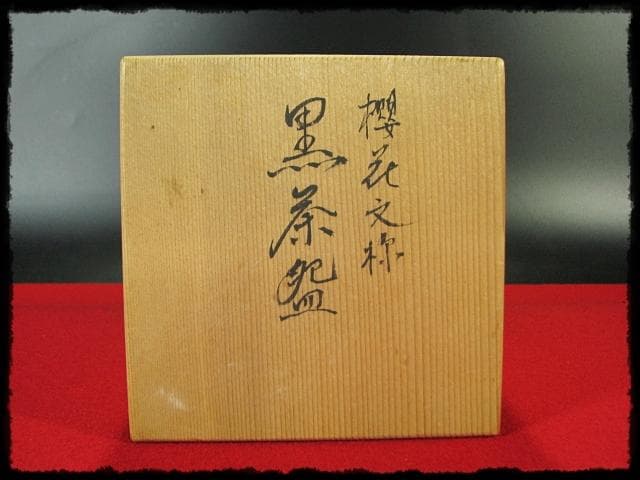 櫻花文様
黒茶盌